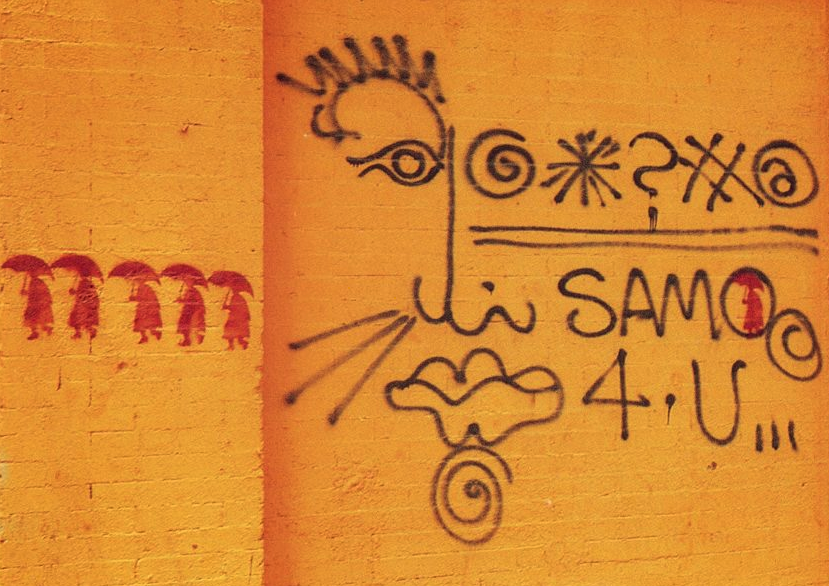 @*?#@
SAMO©
4.U,,,